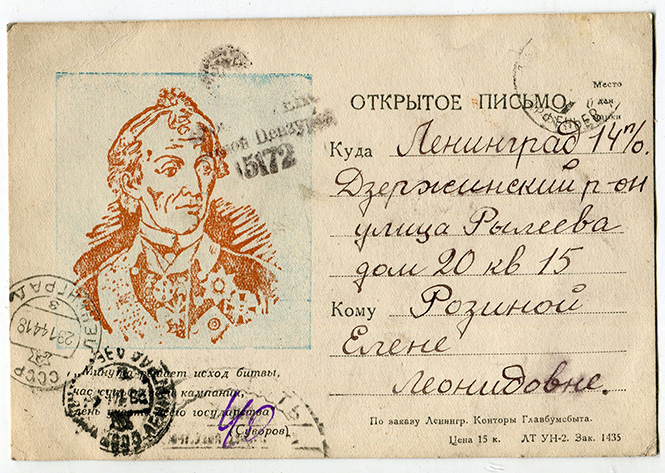 ОТКРЫТОЕ ПИСЬМО
Место
для
марки
Военной Цензурой
15172
Куда Ленинград 14 п/о.
Дзержинский р-он
улица Рылеева
дом 20 кв 15
Кому Розиной
Елене
Леонидовне.
Минута решает исход битвы,
час кампании,
день государства
(Суворов)
40
СССР ЛЕНИНГРАД
По заказу Ленингр. Конторы Главбумсбыта.
Цена 15 к. ЛТ УН-2. Зак. 1435